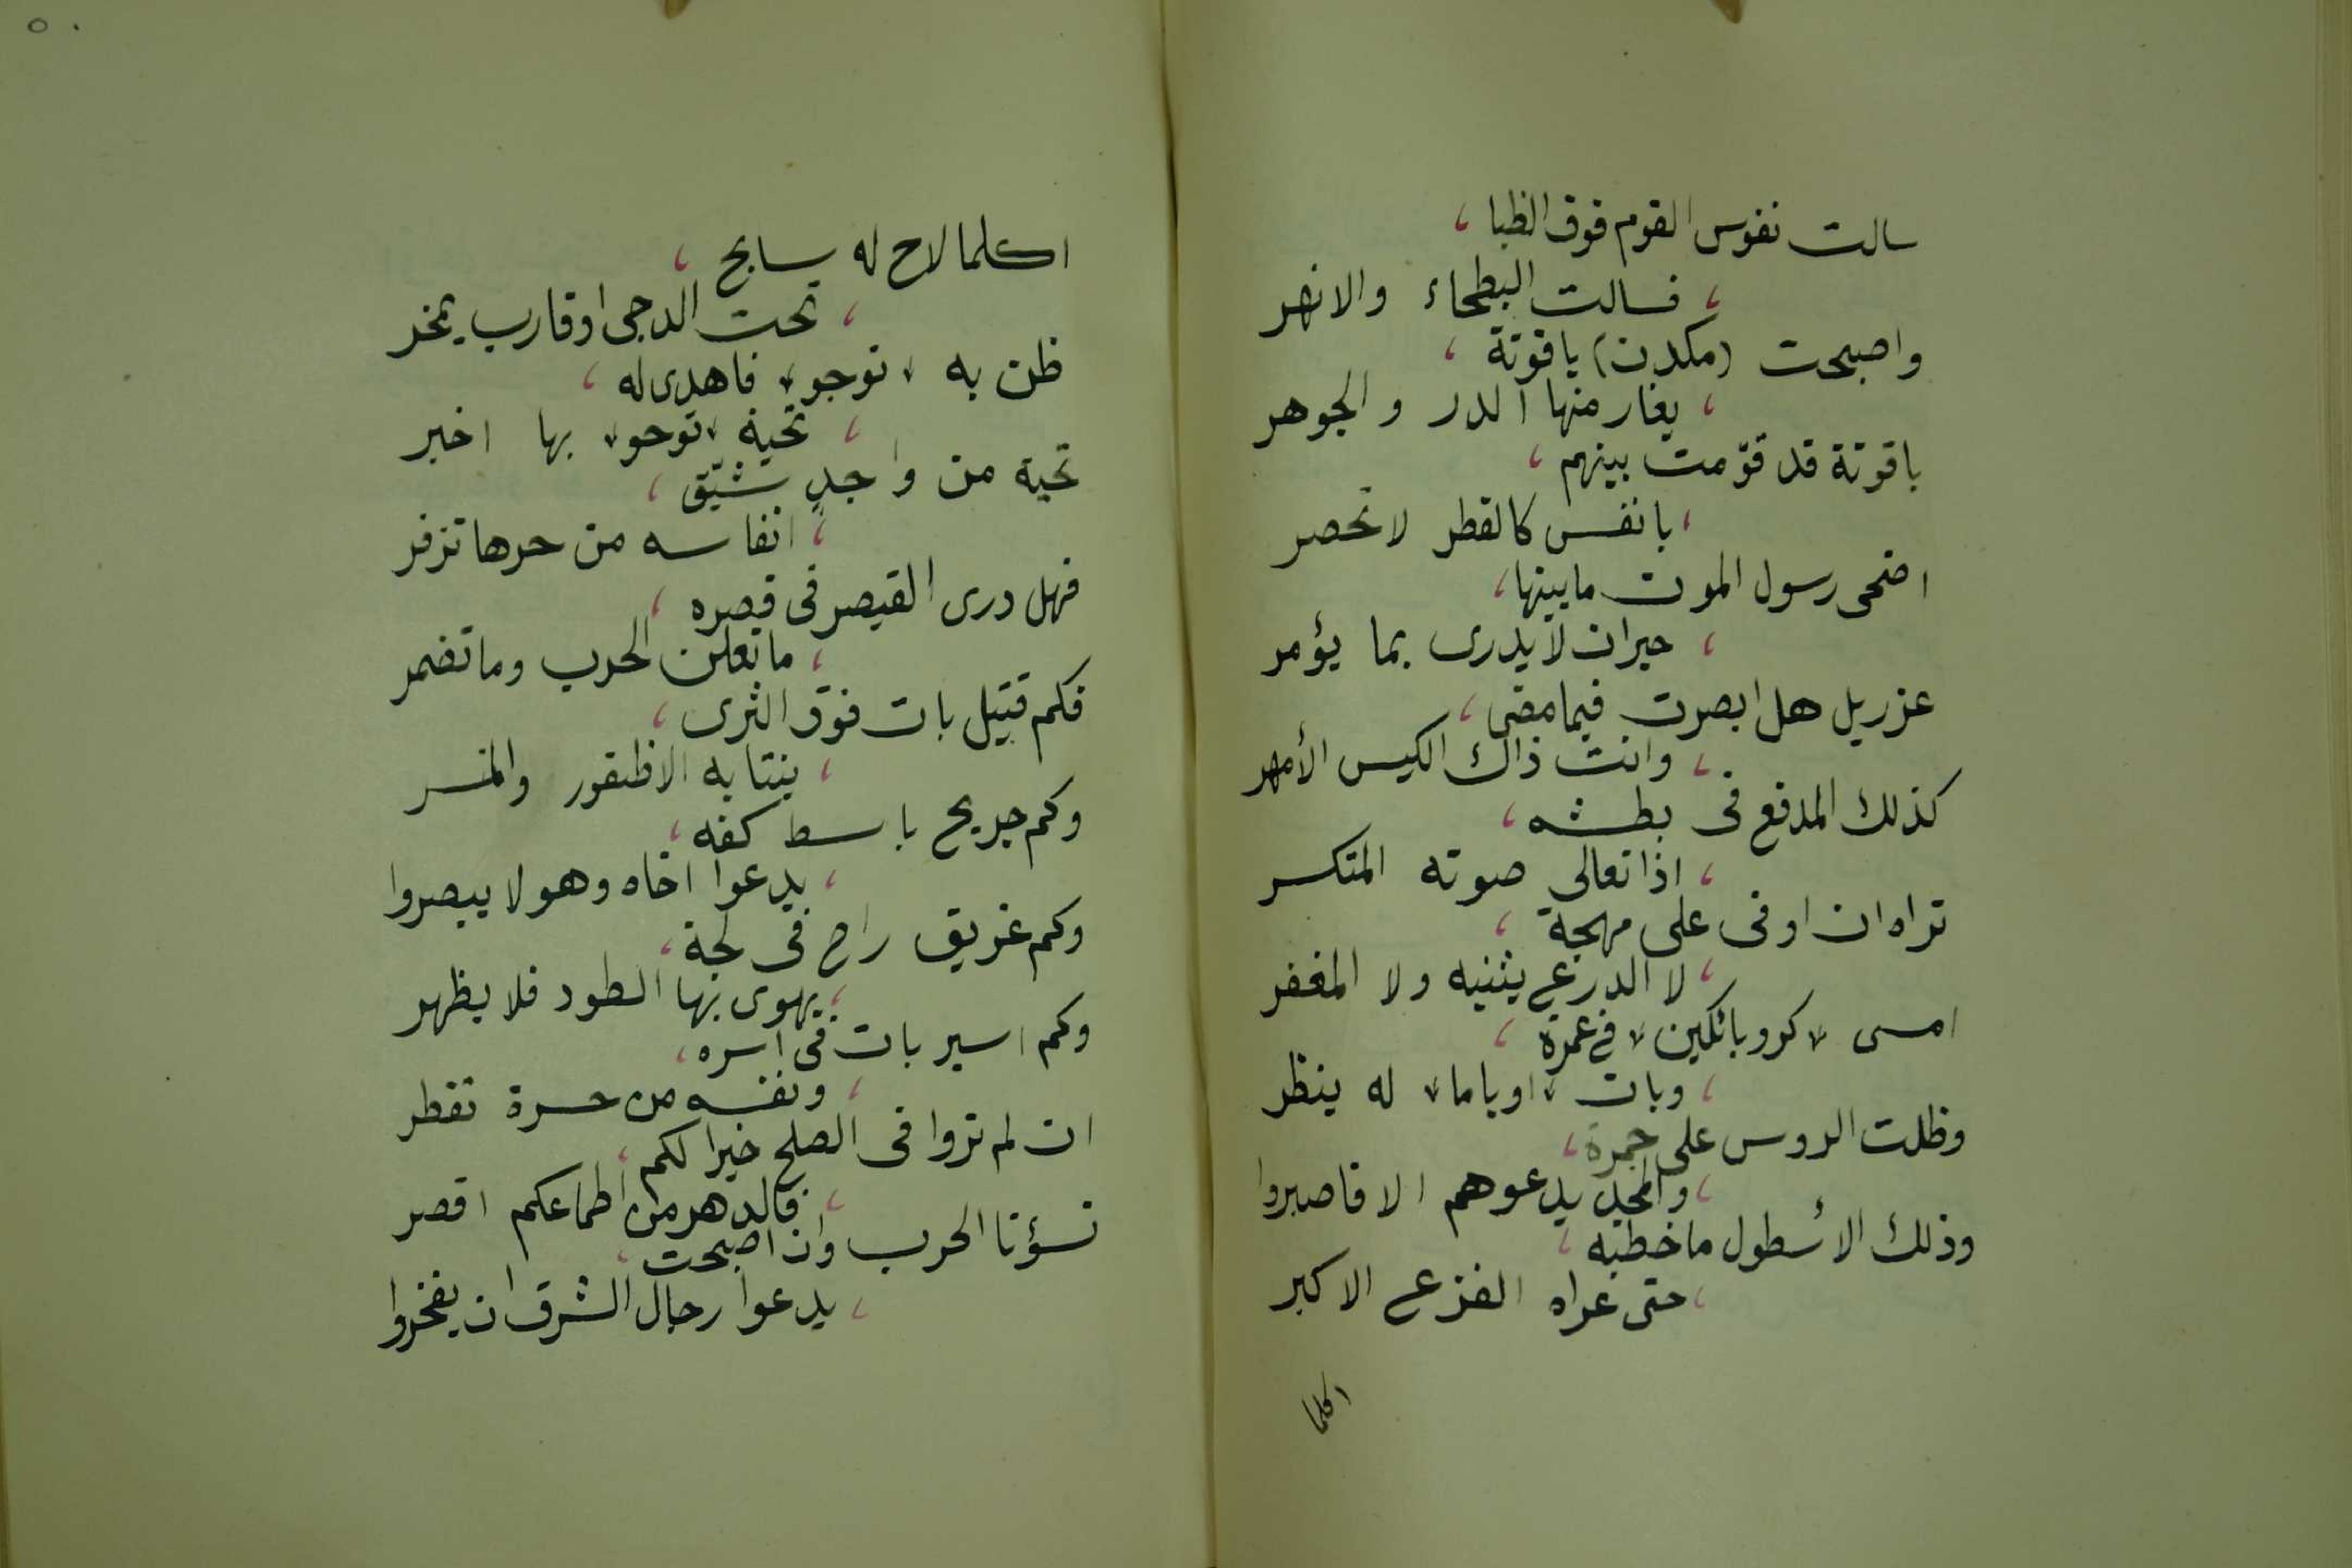 سالت نفوس القوم فوق الظبا ،
، فسالت البطحاء والانهر
واصبحت (مكدن) ياقوتة ،
، يغار منها الدر و الجوهر
ياقوتة قد قوّمت بينهم ،
، بانفس كالقطر لا تحصر
اضحى رسول الموت ما بينها ،
، حيران لا يدرى بما يؤمر
عزريل هل ابصرت فيما مضى ،
، وانت ذاك الكيس الأمهر
كذلك المدفع فى بطشه ،
، اذا تعالى صوته المتكسر
تراه ان اوفى على مهجة ،
، لا الدرع يثنيه ولا المغفر
امسى « كروباتكين » فى غمرة ،
، وبات « اوياما » له ينظر
وظلت الروس على جمرة ،
، والمجد يدعوهم الا فاصبروا
وذلك الأسطول ما خطبه ،
، حتى عراه الفزع الاكبر
اكلما
٥٠
اكلما لاح له سابح ،
، تحت الدجى او قارب يمخر
ظن به « توجو » فاهدى له ،
، تحية « توجو » بها اخبر
تحية من واجد شيّق ،
، انفاسه من حرها تزفر
فهل درى القيصر فى قصره ،
، ما تعلن الحرب وما تضمر
فكم قتيل بات فوق الثرى ،
، ينتابه الاظفور والمنسر
وكم جريح باسط كفه ،
، يدعوا اخاه وهو لا يبصروا
وكم غريق راح فى لجة ،
، يهوى بها الطود فلا يظهر
وكم اسير بات فى اسره ،
، ونفسه من حسرة تقطر
ان لم تروا فى الصلح خيرا لكم ،
، فالدهر من اطماعكم اقصر
تسؤنا الحرب وان اصبحت ،
، يدعوا رجال الشرق ان يفخروا